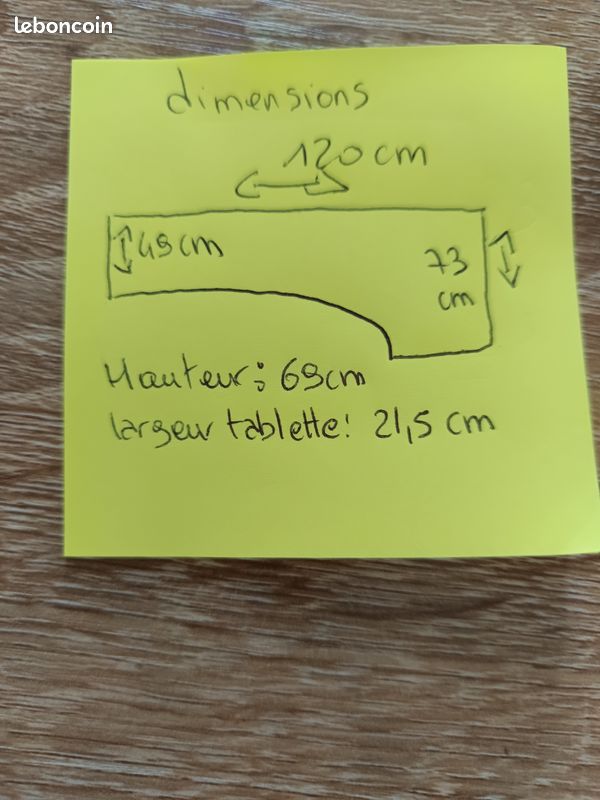 leboncoin
dimensions
120 cm
49 cm
73
cm
Hauteur: 69cm
largeur tablette: 21,5 cm